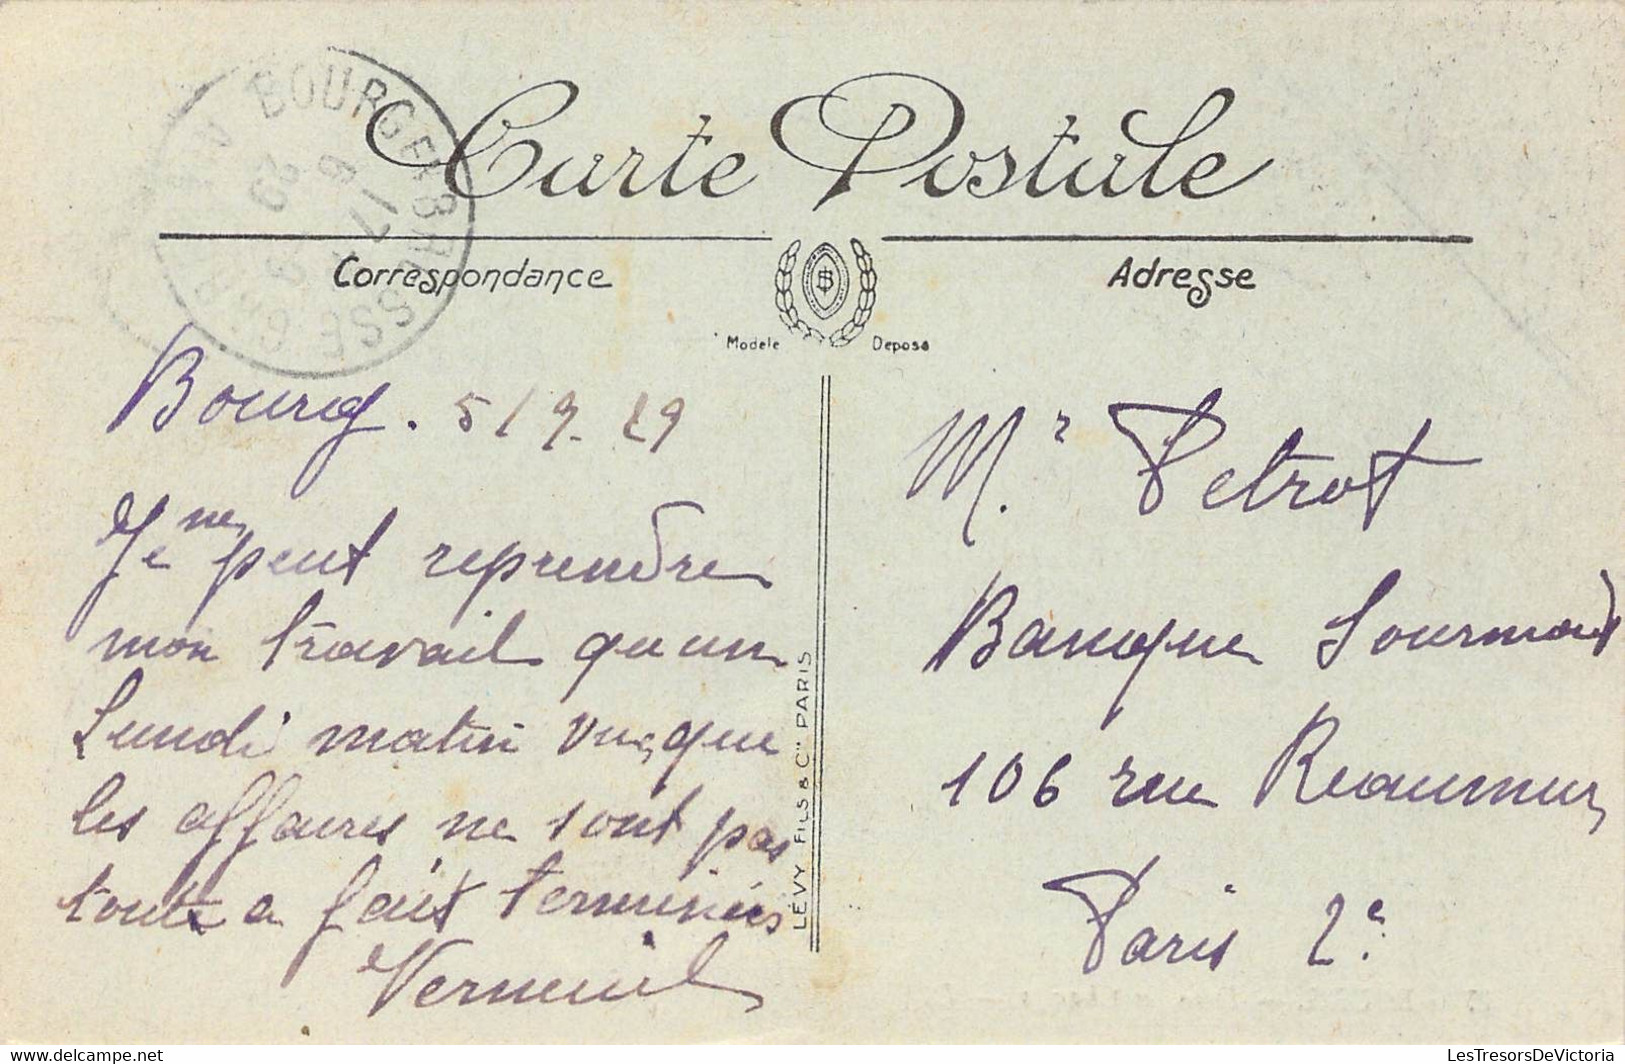 BOURG EN BRESSE
Carte Postale
Correspondance
Adresse
Modele Deposé
Bourg. 5/9.29
Je ne peut reprendre
mon travail qu'un
Lundi matin vu que
les affaires ne sont pas
toute a fait terminées
Verneuil
LÉVY FILS & Cie PARIS
M.r Petrot
Banque
106 rue Reaumur
Paris 2e
LesTresorsDeVictoria